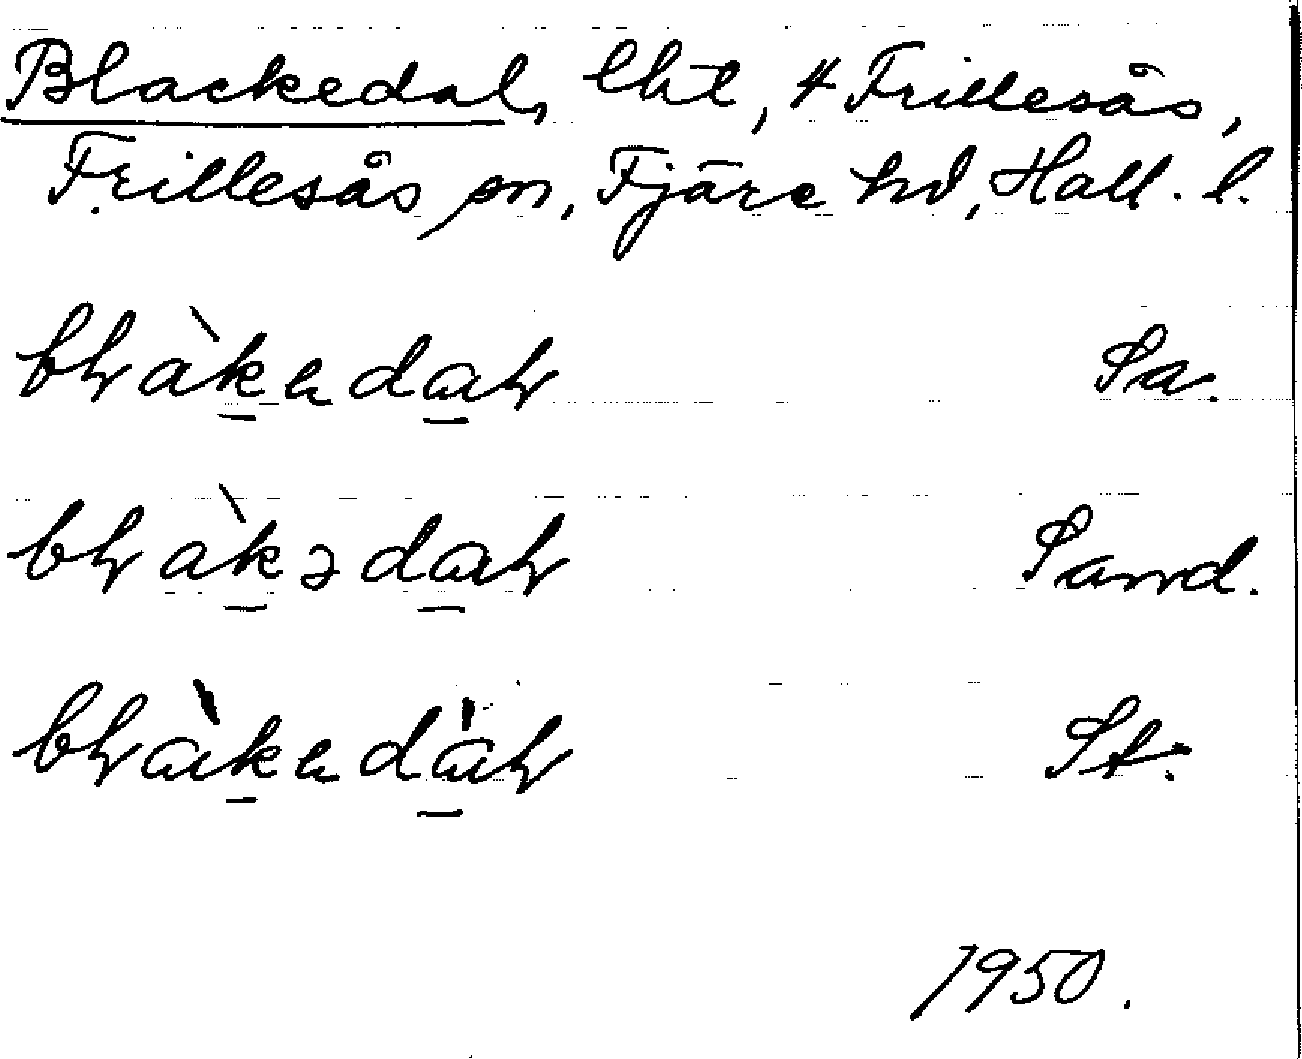 Blackedal, lht, 4 Frillesås,
Frillesås sn, Fjäre hd, Hall. l.
bɬàkadaɬ Sa.
bɬàkədaɬ Sand.
bɬàkadàɬ St.
1950.